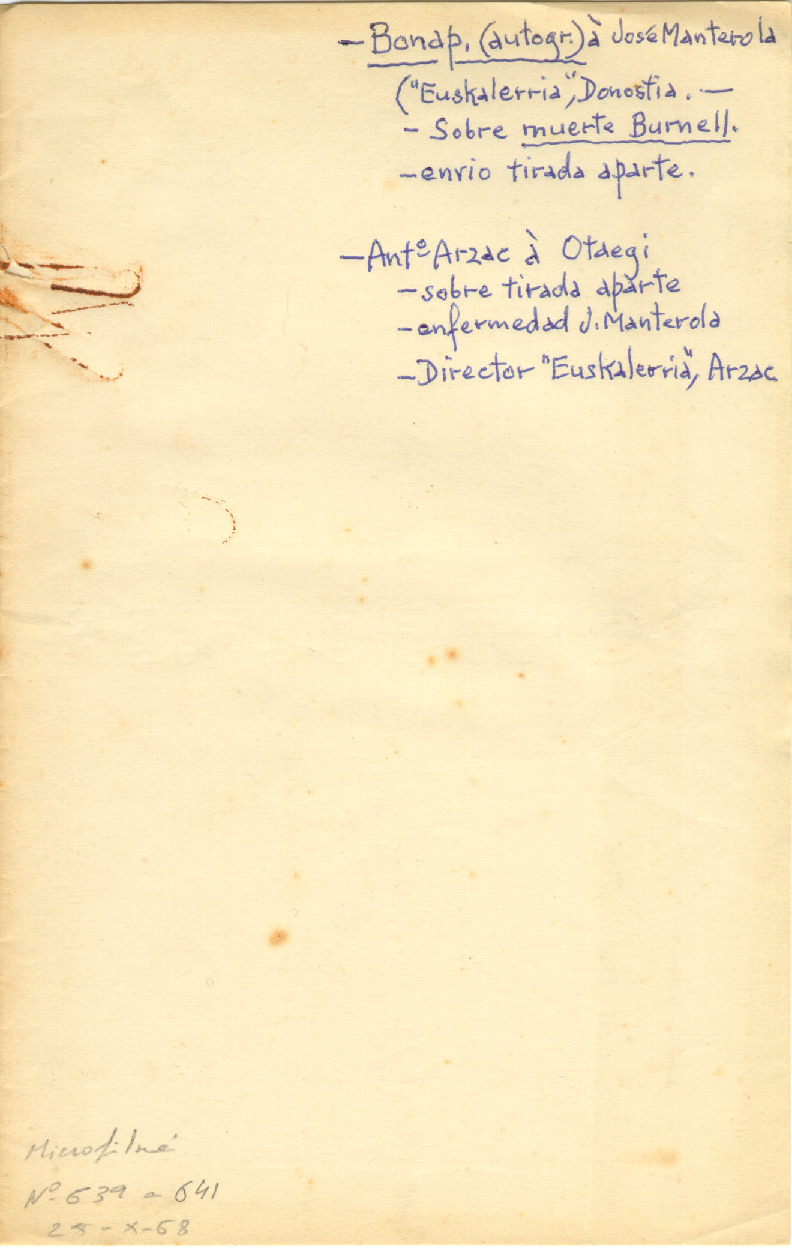 - Bonap. (autogr.) à José Manterola
("Euskalerria", Donostia. —
- Sobre muerte Burnell.
- envio tirada aparte.
- Antº Arzac à Otaegi
- sobre tirada aparte
- enfermedad J. Manterola
- Director "Euskalerria", Arzac
Microfilmé
Nº 639 a 641
-X-68